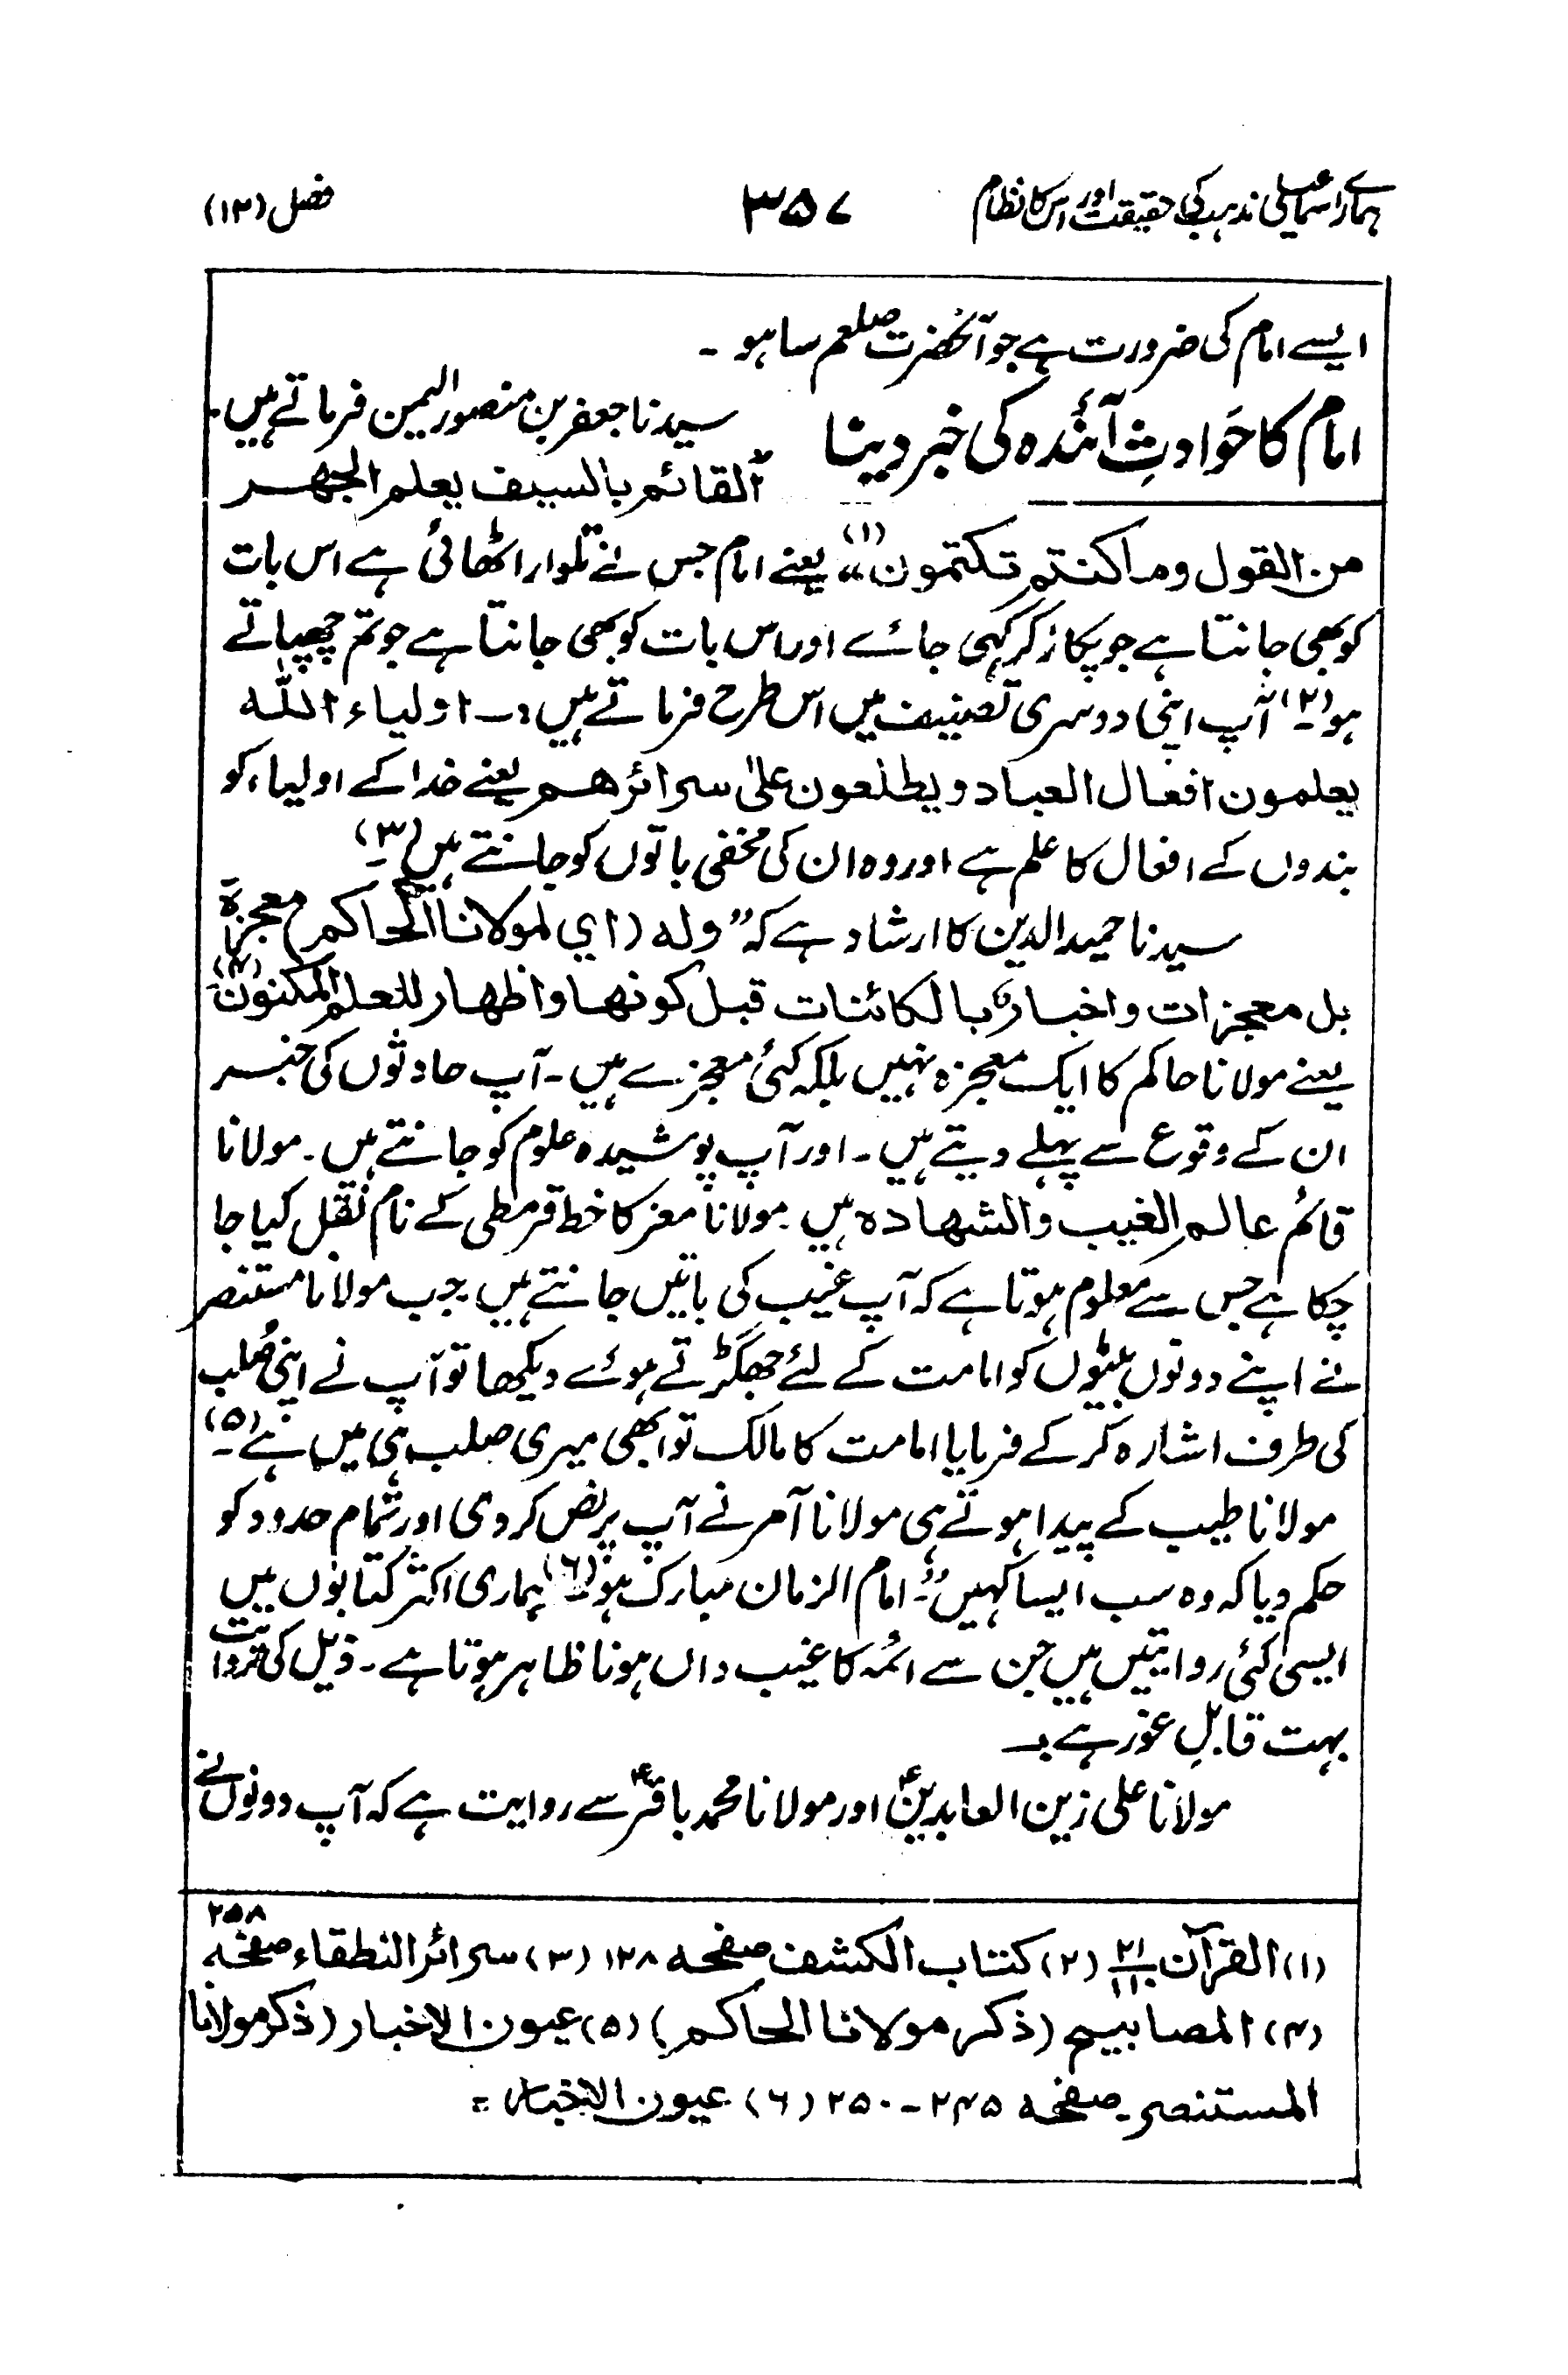 ہمارے اسماعیلی مذہب کی حقیقت اور اس کا نظام ۳۵۷ فصل (۱۲)
ایسے امام کی ضرورت ہے جو آنحضرت صلعم سا ہو ۔
امام کا حَوادثِ آئندہ کی خبر دینا
سیدنا جعفر بن منصور الیمن فرماتے ہیں۔
"القائم بالسیف یعلم الجھر
من القول وما کنتم تکتمون" (۱) یعنے امام جس نے تلوار اٹھائی ہے اس بات
کو بھی جانتا ہے جو پکار کر کہی جائے اور اس بات کو بھی جانتا ہے جو تم چھپاتے
ہو (۲)۔ آپ اپنی دوسری تصنیف میں اس طرح فرماتے ہیں :۔ اولیاء اللّٰہ
یعلمون افعال العباد ویطلعون علیٰ سرائرھم یعنے خدا کے اولیاء کو
بندوں کے افعال کا علم ہے اور وہ ان کی مخفی باتوں کو جانتے ہیں (۳)۔
سیدنا حمید الدین کا ارشاد ہے کہ "ولہ (ای لمولانا الحاکم) معجزۃ
بل معجزات واخبارٌ بالکائنات قبل کونھا واظھار للعلم المکنون (۴)"
یعنے مولانا حاکم کا ایک معجزہ نہیں بلکہ کئی معجزے ہیں۔ آپ حادثوں کی خبر
ان کے وقوع سے پہلے دیتے ہیں۔ اور آپ پوشیدہ علوم کو جانتے ہیں۔ مولانا
قائم عالم الغیب والشھادہ ہیں۔ مولانا معز کا خط قرمطی کے نام نقل کیا جا
چکا ہے جس سے معلوم ہوتا ہے کہ آپ غیب کی باتیں جانتے ہیں۔ جب مولانا مستنصر
نے اپنے دونوں بیٹوں کو امامت کے لئے جھگڑتے ہوئے دیکھا تو آپ نے اپنی صُلب
کی طرف اشارہ کر کے فرمایا امامت کا مالک تو ابھی میری صلب ہی میں ہے (۵)۔
مولانا طیب کے پیدا ہوتے ہی مولانا آمر نے آپ پر نص کر دی اور تمام حدود کو
حکم دیا کہ وہ سب ایسا کہیں :۔ امام الزمان مبارک ہو (۶) ہماری اکثر کتابوں میں
ایسی کئی روایتیں ہیں جن سے ائمہ کا غیب داں ہونا ظاہر ہوتا ہے۔ ذیل کی روایت
بہت قابلِ غور ہے :۔
مولانا علی زین العابدینؑ اور مولانا محمد باقرؑ سے روایت ہے کہ آپ دونوں نے
(۱) القرآن ۲۱/۱۱۰ (۲) کتاب الکشف صفحہ ۱۲۸ (۳) سرائر النطقاء صفحہ ۲۵۸
(۴) المصابیح (ذکر مولانا الحاکم) (۵) عیون الاخبار (ذکر مولانا
المستنصر۔ صفحہ ۲۴۵ – ۲۵۰ (۶) عیون الاخبار =